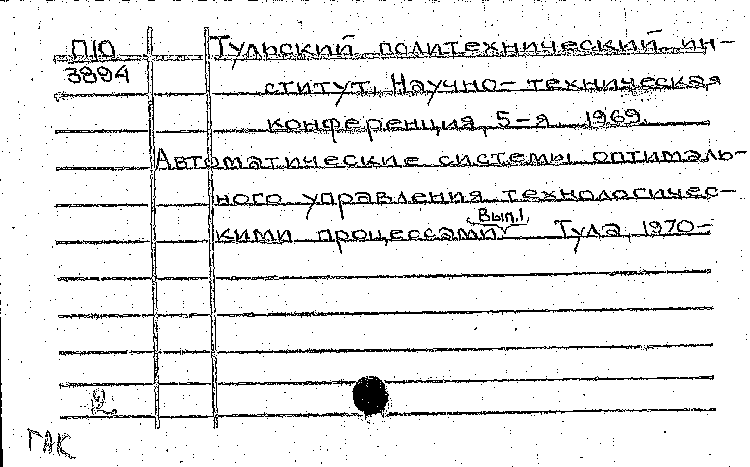 П10
3894
Тульский политехнический ин-
ститут. Научно-техническая
конференция, 5-я. 1969.
Автоматические системы оптималь-
ного управления технологичес-
кими процессами. Вып.1, Тула, 1970-
2
ГАК